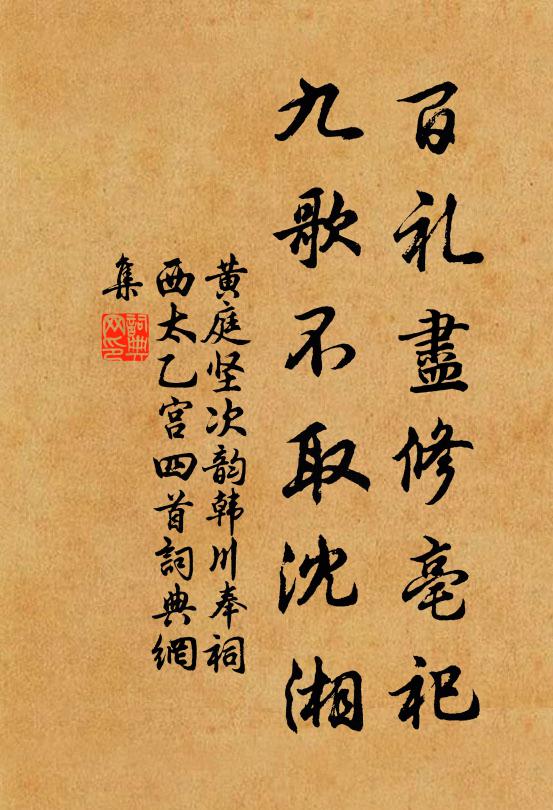 百礼盡修亳祀
九歌不取沈湘
黄庭坚次韵韩川奉祠
西太乙宫四首詞典網
集
詞典
网印